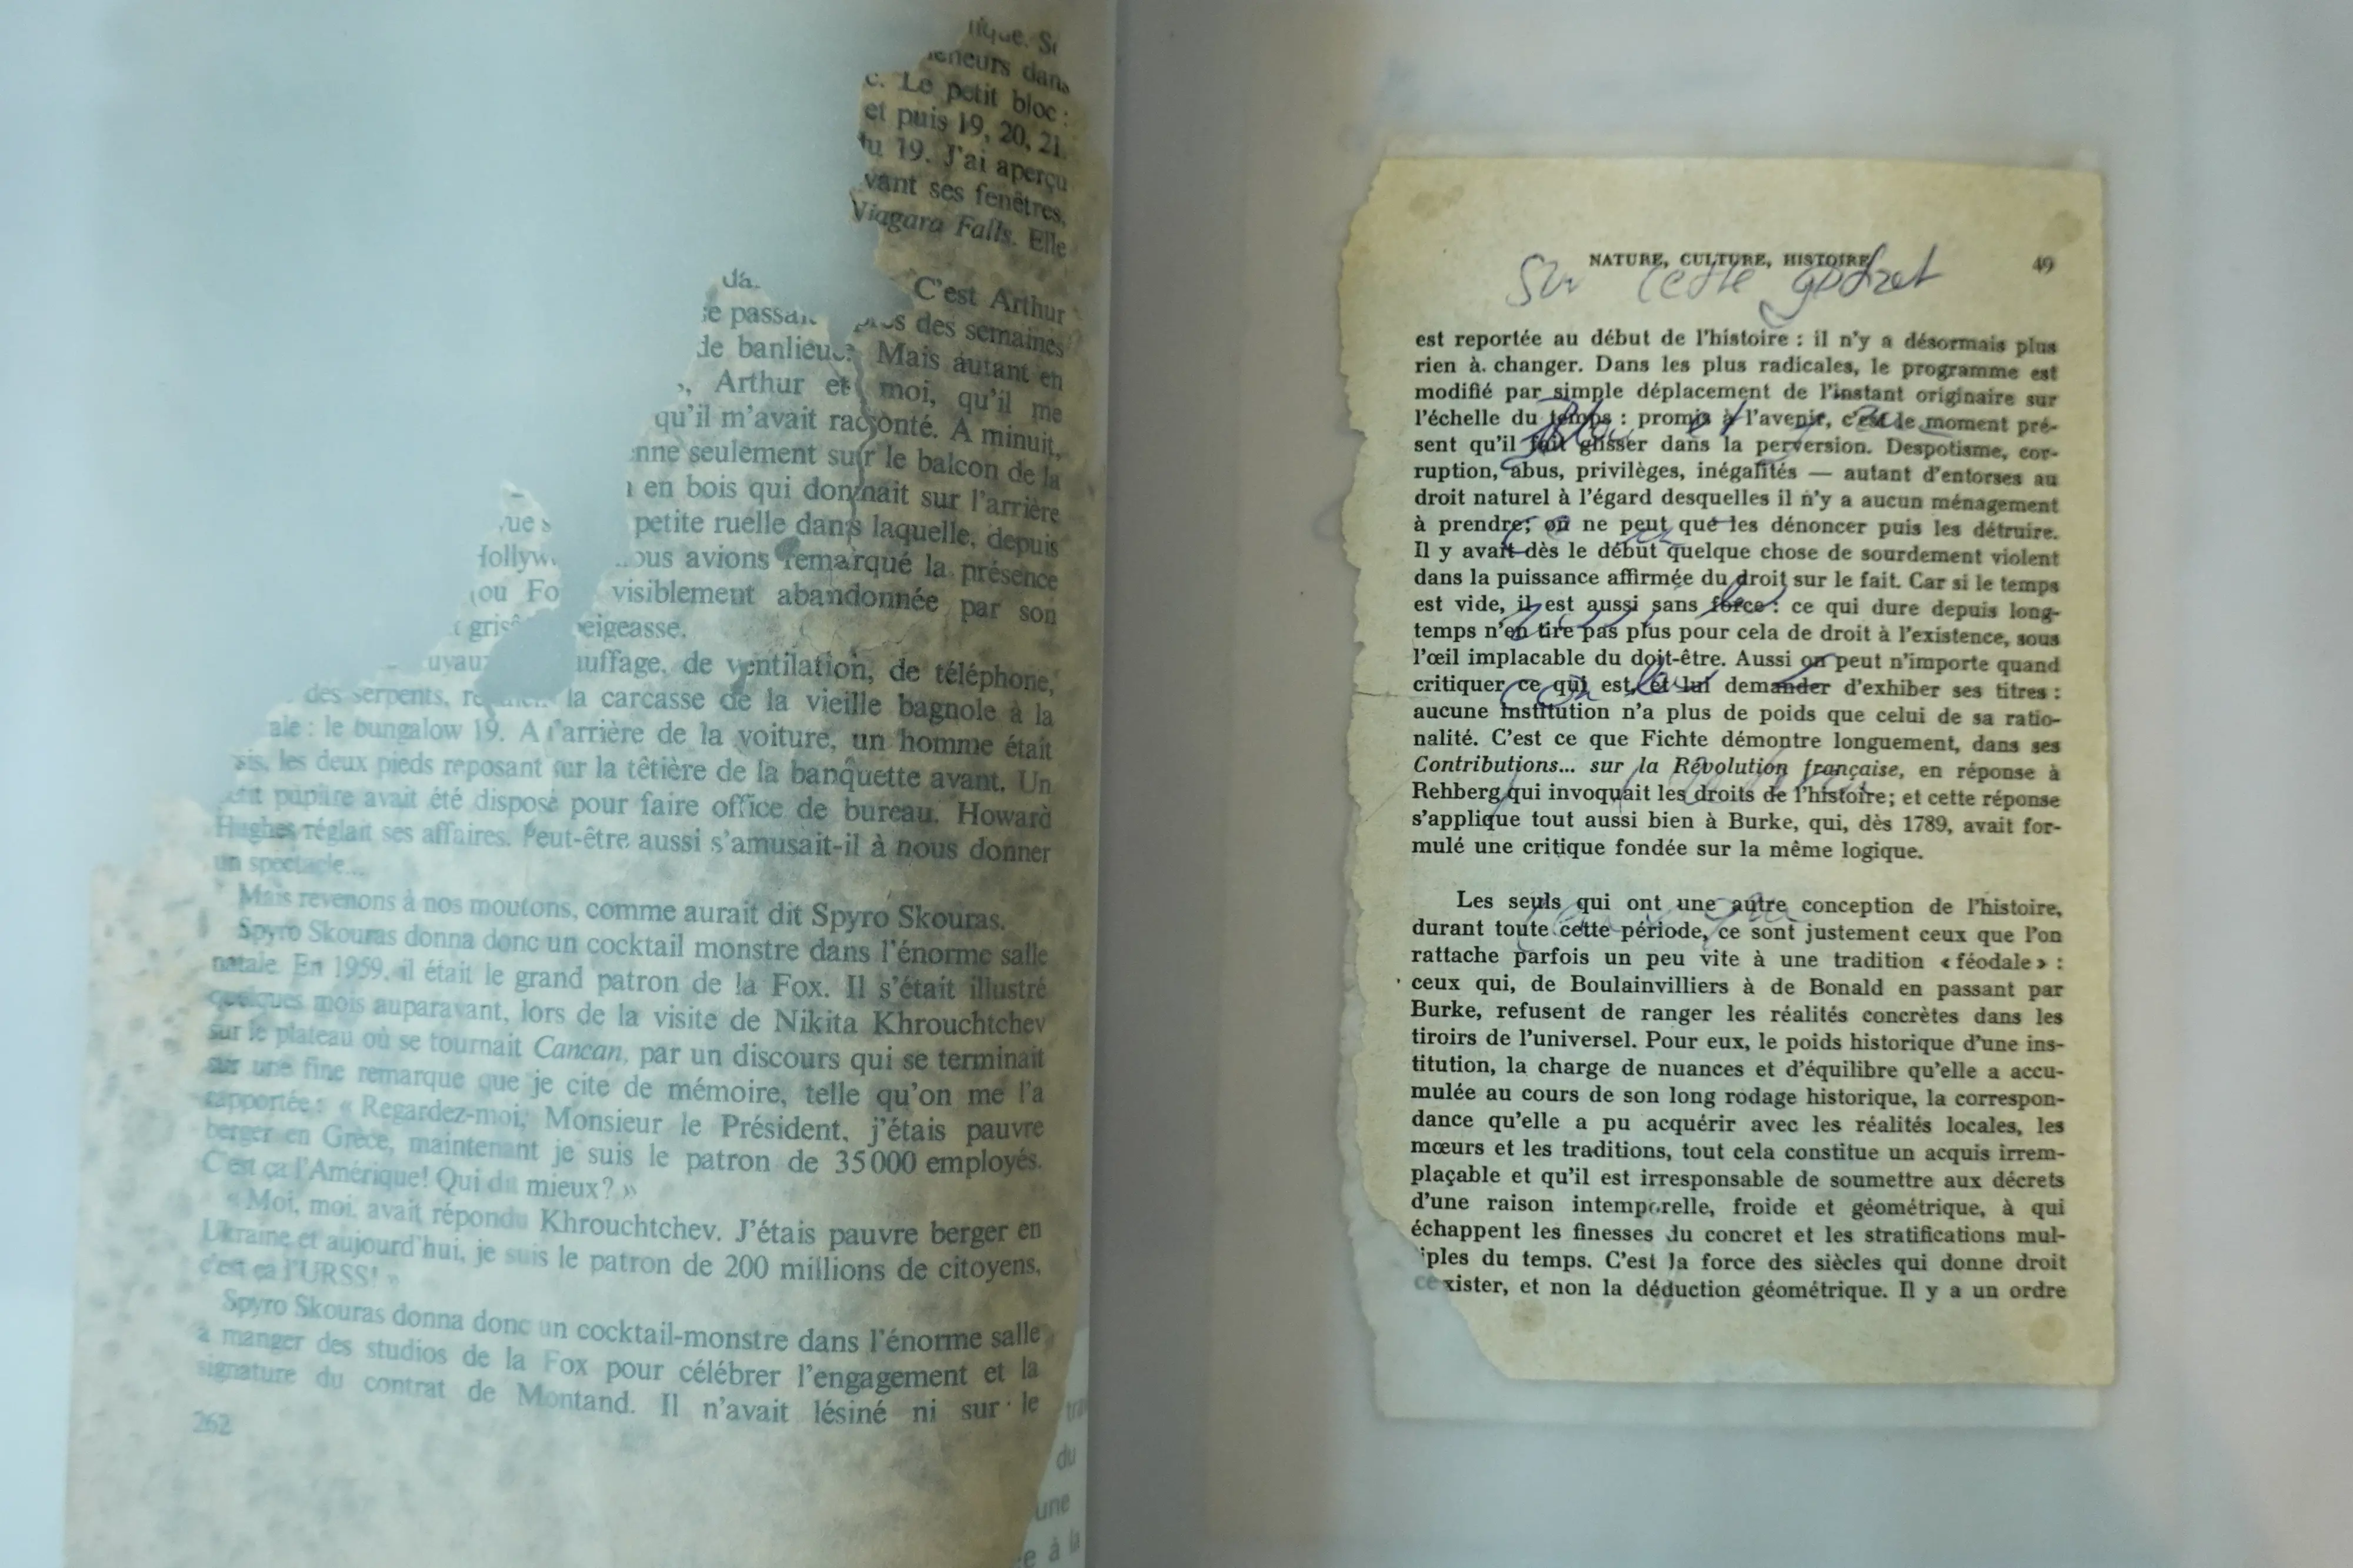 dans
c. Le petit bloc :
et puis 19, 20, 21.
19. J'ai aperçu
vant ses fenêtres,
Viagara Falls. Elle
C'est Arthur
des semaines
de banlieue. Mais autant en
Arthur et moi, qu'il me
qu'il m'avait raconté. A minuit,
seulement sur le balcon de la
en bois qui donnait sur l'arrière
petite ruelle dans laquelle, depuis
ous avions remarqué la présence
visiblement abandonnée par son
eigeasse.
uffage, de ventilation, de téléphone,
des serpents, la carcasse de la vieille bagnole à la
ale : le bungalow 19. A l'arrière de la voiture, un homme était
sis, les deux pieds reposant sur la têtière de la banquette avant. Un
pupitre avait été disposé pour faire office de bureau. Howard
Hughes réglait ses affaires. Peut-être aussi s'amusait-il à nous donner
un spectacle...
Mais revenons à nos moutons, comme aurait dit Spyro Skouras.
Spyro Skouras donna donc un cocktail monstre dans l'énorme salle
natale. En 1959, il était le grand patron de la Fox. Il s'était illustré
quelques mois auparavant, lors de la visite de Nikita Khrouchtchev
sur le plateau où se tournait Cancan, par un discours qui se terminait
sur une fine remarque que je cite de mémoire, telle qu'on me l'a
rapportée : « Regardez-moi, Monsieur le Président, j'étais pauvre
berger en Grèce, maintenant je suis le patron de 35 000 employés.
C'est ça l'Amérique! Qui dit mieux? »
« Moi, moi, avait répondu Khrouchtchev. J'étais pauvre berger en
Ukraine et aujourd'hui, je suis le patron de 200 millions de citoyens,
c'est ça l'URSS! »
Spyro Skouras donna donc un cocktail-monstre dans l'énorme salle
à manger des studios de la Fox pour célébrer l'engagement et la
signature du contrat de Montand. Il n'avait lésiné ni sur le
262
du
une
à la
NATURE, CULTURE, HISTOIRE 49
est reportée au début de l'histoire : il n'y a désormais plus
rien à changer. Dans les plus radicales, le programme est
modifié par simple déplacement de l'instant originaire sur
l'échelle du temps : promis à l'avenir, c'est le moment pré-
sent qu'il fait glisser dans la perversion. Despotisme, cor-
ruption, abus, privilèges, inégalités — autant d'entorses au
droit naturel à l'égard desquelles il n'y a aucun ménagement
à prendre; on ne peut que les dénoncer puis les détruire.
Il y avait dès le début quelque chose de sourdement violent
dans la puissance affirmée du droit sur le fait. Car si le temps
est vide, il est aussi sans force : ce qui dure depuis long-
temps n'en tire pas plus pour cela de droit à l'existence, sous
l'œil implacable du doit-être. Aussi on peut n'importe quand
critiquer ce qui est, et lui demander d'exhiber ses titres :
aucune institution n'a plus de poids que celui de sa ratio-
nalité. C'est ce que Fichte démontre longuement, dans ses
Contributions... sur la Révolution française, en réponse à
Rehberg qui invoquait les droits de l'histoire; et cette réponse
s'applique tout aussi bien à Burke, qui, dès 1789, avait for-
mulé une critique fondée sur la même logique.
Les seuls qui ont une autre conception de l'histoire,
durant toute cette période, ce sont justement ceux que l'on
rattache parfois un peu vite à une tradition « féodale » :
ceux qui, de Boulainvilliers à de Bonald en passant par
Burke, refusent de ranger les réalités concrètes dans les
tiroirs de l'universel. Pour eux, le poids historique d'une ins-
titution, la charge de nuances et d'équilibre qu'elle a accu-
mulée au cours de son long rodage historique, la correspon-
dance qu'elle a pu acquérir avec les réalités locales, les
mœurs et les traditions, tout cela constitue un acquis irrem-
plaçable et qu'il est irresponsable de soumettre aux décrets
d'une raison intemporelle, froide et géométrique, à qui
échappent les finesses du concret et les stratifications mul-
iples du temps. C'est la force des siècles qui donne droit
xister, et non la déduction géométrique. Il y a un ordre